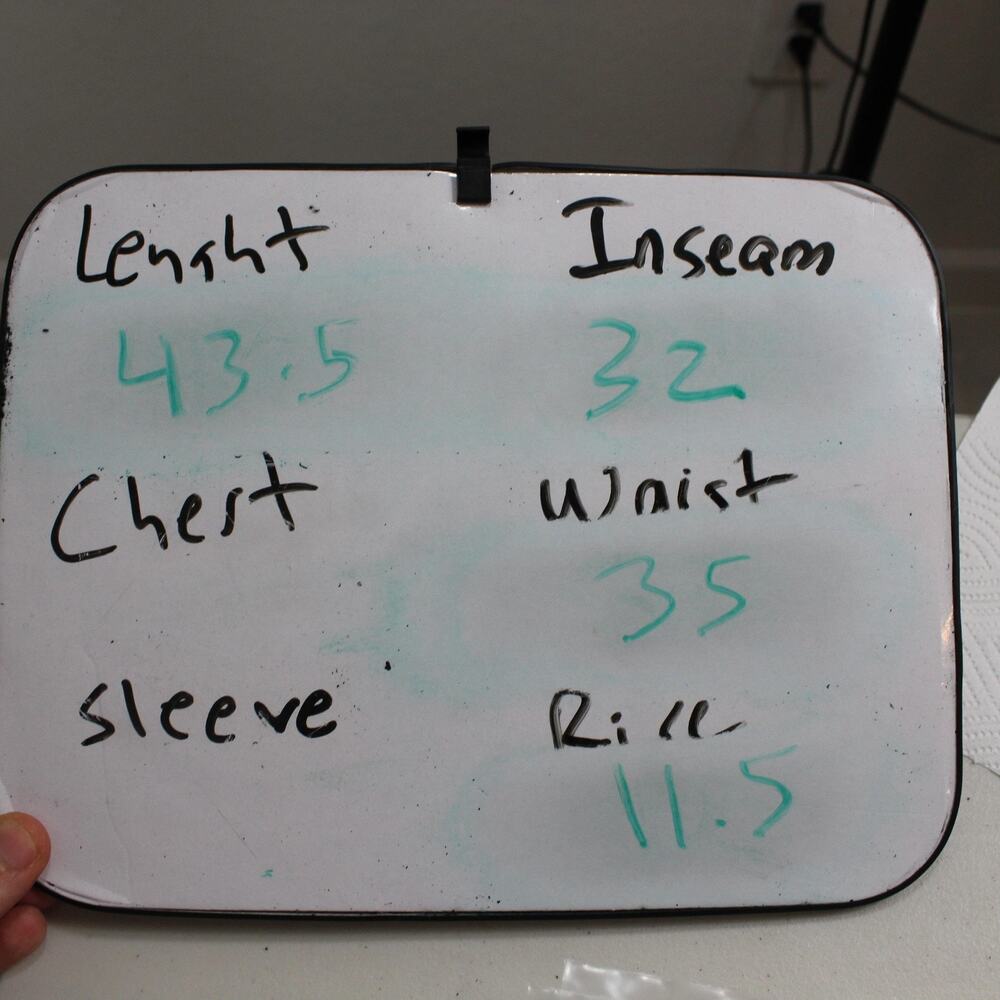 Lenght Inseam
43.5 32
Chest Waist
35
sleeve Rise
11.5